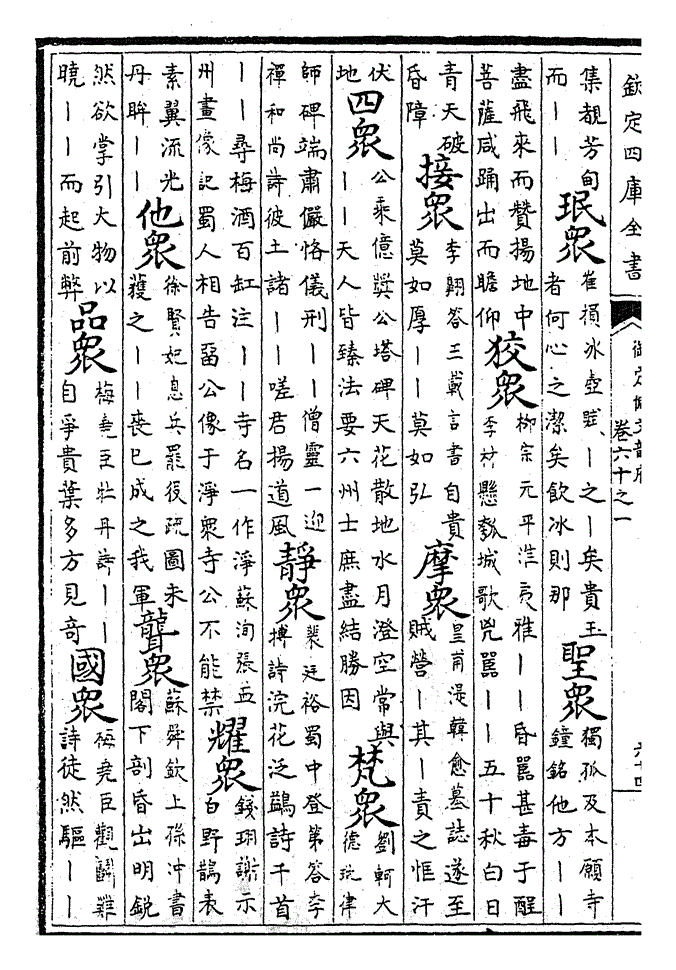 欽定四庫全書
御定佩文韻府
卷六十之一
六十四
集覩芳甸
而丨丨
珉衆
崔損冰壺賦丨之丨矣貴玉
者何心之潔矣飲冰則那
聖衆
獨孤及本願寺
鐘銘他方丨丨
盡飛來而贊揚地中
菩薩咸踊出而瞻仰
狡衆
柳宗元平淮夷雅丨丨昏嚚甚毒于酲
李材懸瓠城歌兇嚚丨丨五十秋白日
青天破
昏障
接衆
李翺答王載言書自貴
莫如厚丨丨莫如弘
摩衆
皇甫湜韓愈墓誌遂至
賊營丨其丨責之恇汗
伏
地
四衆
公乘億奬公塔碑天花散地水月澄空常與
丨丨天人皆臻法要六州士庶盡結勝因
梵衆
劉軻大
德琬律
師碑端肅儼恪儀刑丨丨僧靈一迎
禪和尚詩彼土諸丨丨嗟君揚道風
靜衆
裴廷裕蜀中登第答李
搏詩浣花泛鷁詩千首
丨丨尋梅酒百缸注丨丨寺名一作淨蘇洵張益
州畫像記蜀人相告留公像于淨衆寺公不能禁
耀衆
錢珝謝示
白野鵲表
素翼流光
丹眸丨丨
他衆
徐賢妃息兵罷役疏圖未
獲之丨丨喪已成之我軍
聾衆
蘇舜欽上孫沖書
閣下剖昏出明銳
然欲掌引大物以
曉丨丨而起前弊
品衆
梅堯臣牡丹詩丨丨
自爭貴葉多方見奇
國衆
梅堯臣觀鬭雞
詩徒然驅丨丨